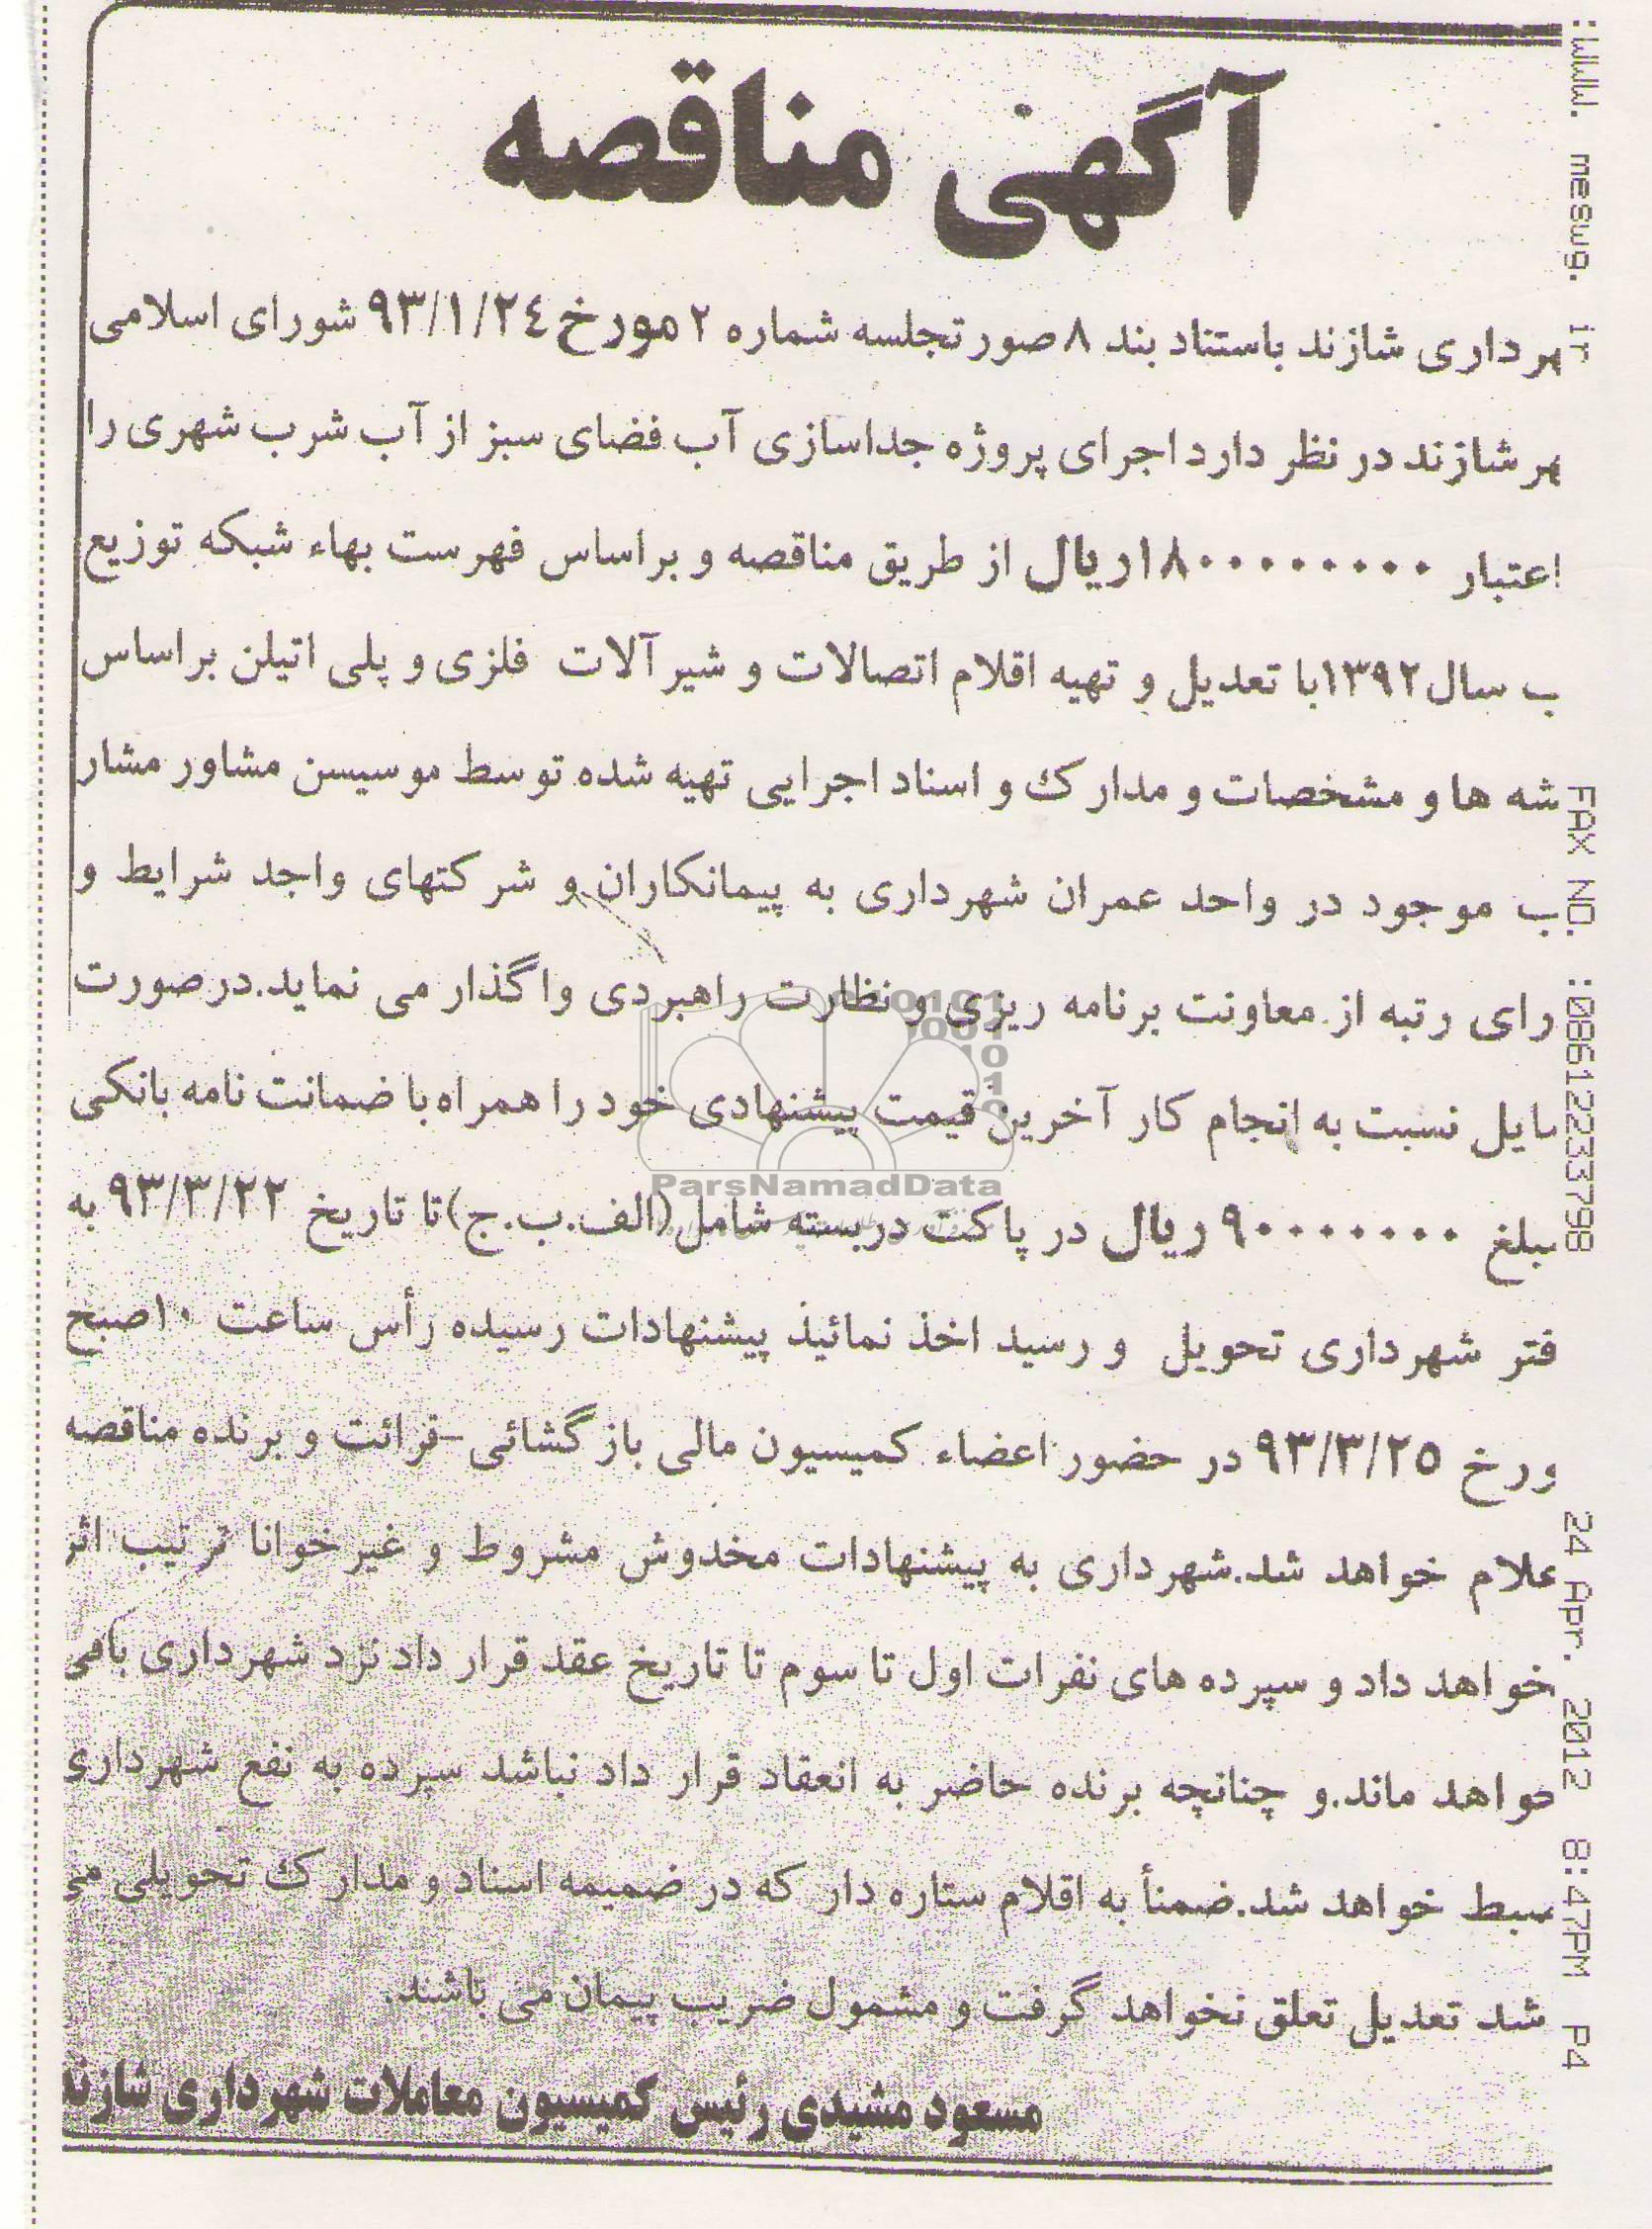 آگهی مناقصه
هرداری شازند باستناد بند ۸ صورتجلسه شماره ۲ مورخ ۹۳/۱/۲٤ شورای اسلامی
هر شازند در نظر دارد اجرای پروژه جداسازی آب فضای سبز از آب شرب شهری را
اعتبار ۱۸۰۰۰۰۰۰۰۰۰ریال از طریق مناقصه و براساس فهرست بهاء شبکه توزیع
ب سال ۱۳۹۲با تعدیل و تهیه اقلام اتصالات و شیر آلات فلزی و پلی اتیلن براساس
شه ها و مشخصات و مدارک و اسناد اجرایی تهیه شده توسط موسیسن مشاور مشار
ب موجود در واحد عمران شهرداری به پیمانکاران و شرکتهای واجد شرایط و
رای رتبه از معاونت برنامه ریزی و نظارت راهبردی واگذار می نماید.درصورت
مایل نسبت به انجام کار آخرین قیمت پیشنهادی خود را همراه با ضمانت نامه بانکی
مبلغ ۹۰۰۰۰۰۰۰۰ریال در پاکت دربسته شامل(الف.ب.ج)تا تاریخ ۹۳/۳/۲۲ به
فتر شهرداری تحویل و رسید اخذ نمائید پیشنهادات رسیده رأس ساعت ۱۰صبح
ورخ ۹۳/۳/۲۵ در حضور اعضاء کمیسیون مالی بازگشائی-قرائت و برنده مناقصه
علام خواهد شد.شهرداری به پیشنهادات مخدوش مشروط و غیرخوانا ترتیب اثر
خواهد داد و سپرده های نفرات اول تا سوم تا تاریخ عقد قرار داد نزد شهرداری باقی
خواهد ماند.و چنانچه برنده حاضر به انعقاد قرار داد نباشد سپرده به نفع شهرداری
سبط خواهد شد.ضمنأ به اقلام ستاره دار که در ضمیمه اسناد و مدارک تحویلی می
شد تعدیل تعلق نخواهد گرفت و مشمول ضریب پیمان می باشند.
مسعود مشیدی رئیس کمیسیون معاملات شهرداری شازند
:www. meswg. ir FAX NO. :08612233798 24 Apr. 2012 8:47PM P4
ParsNamadData